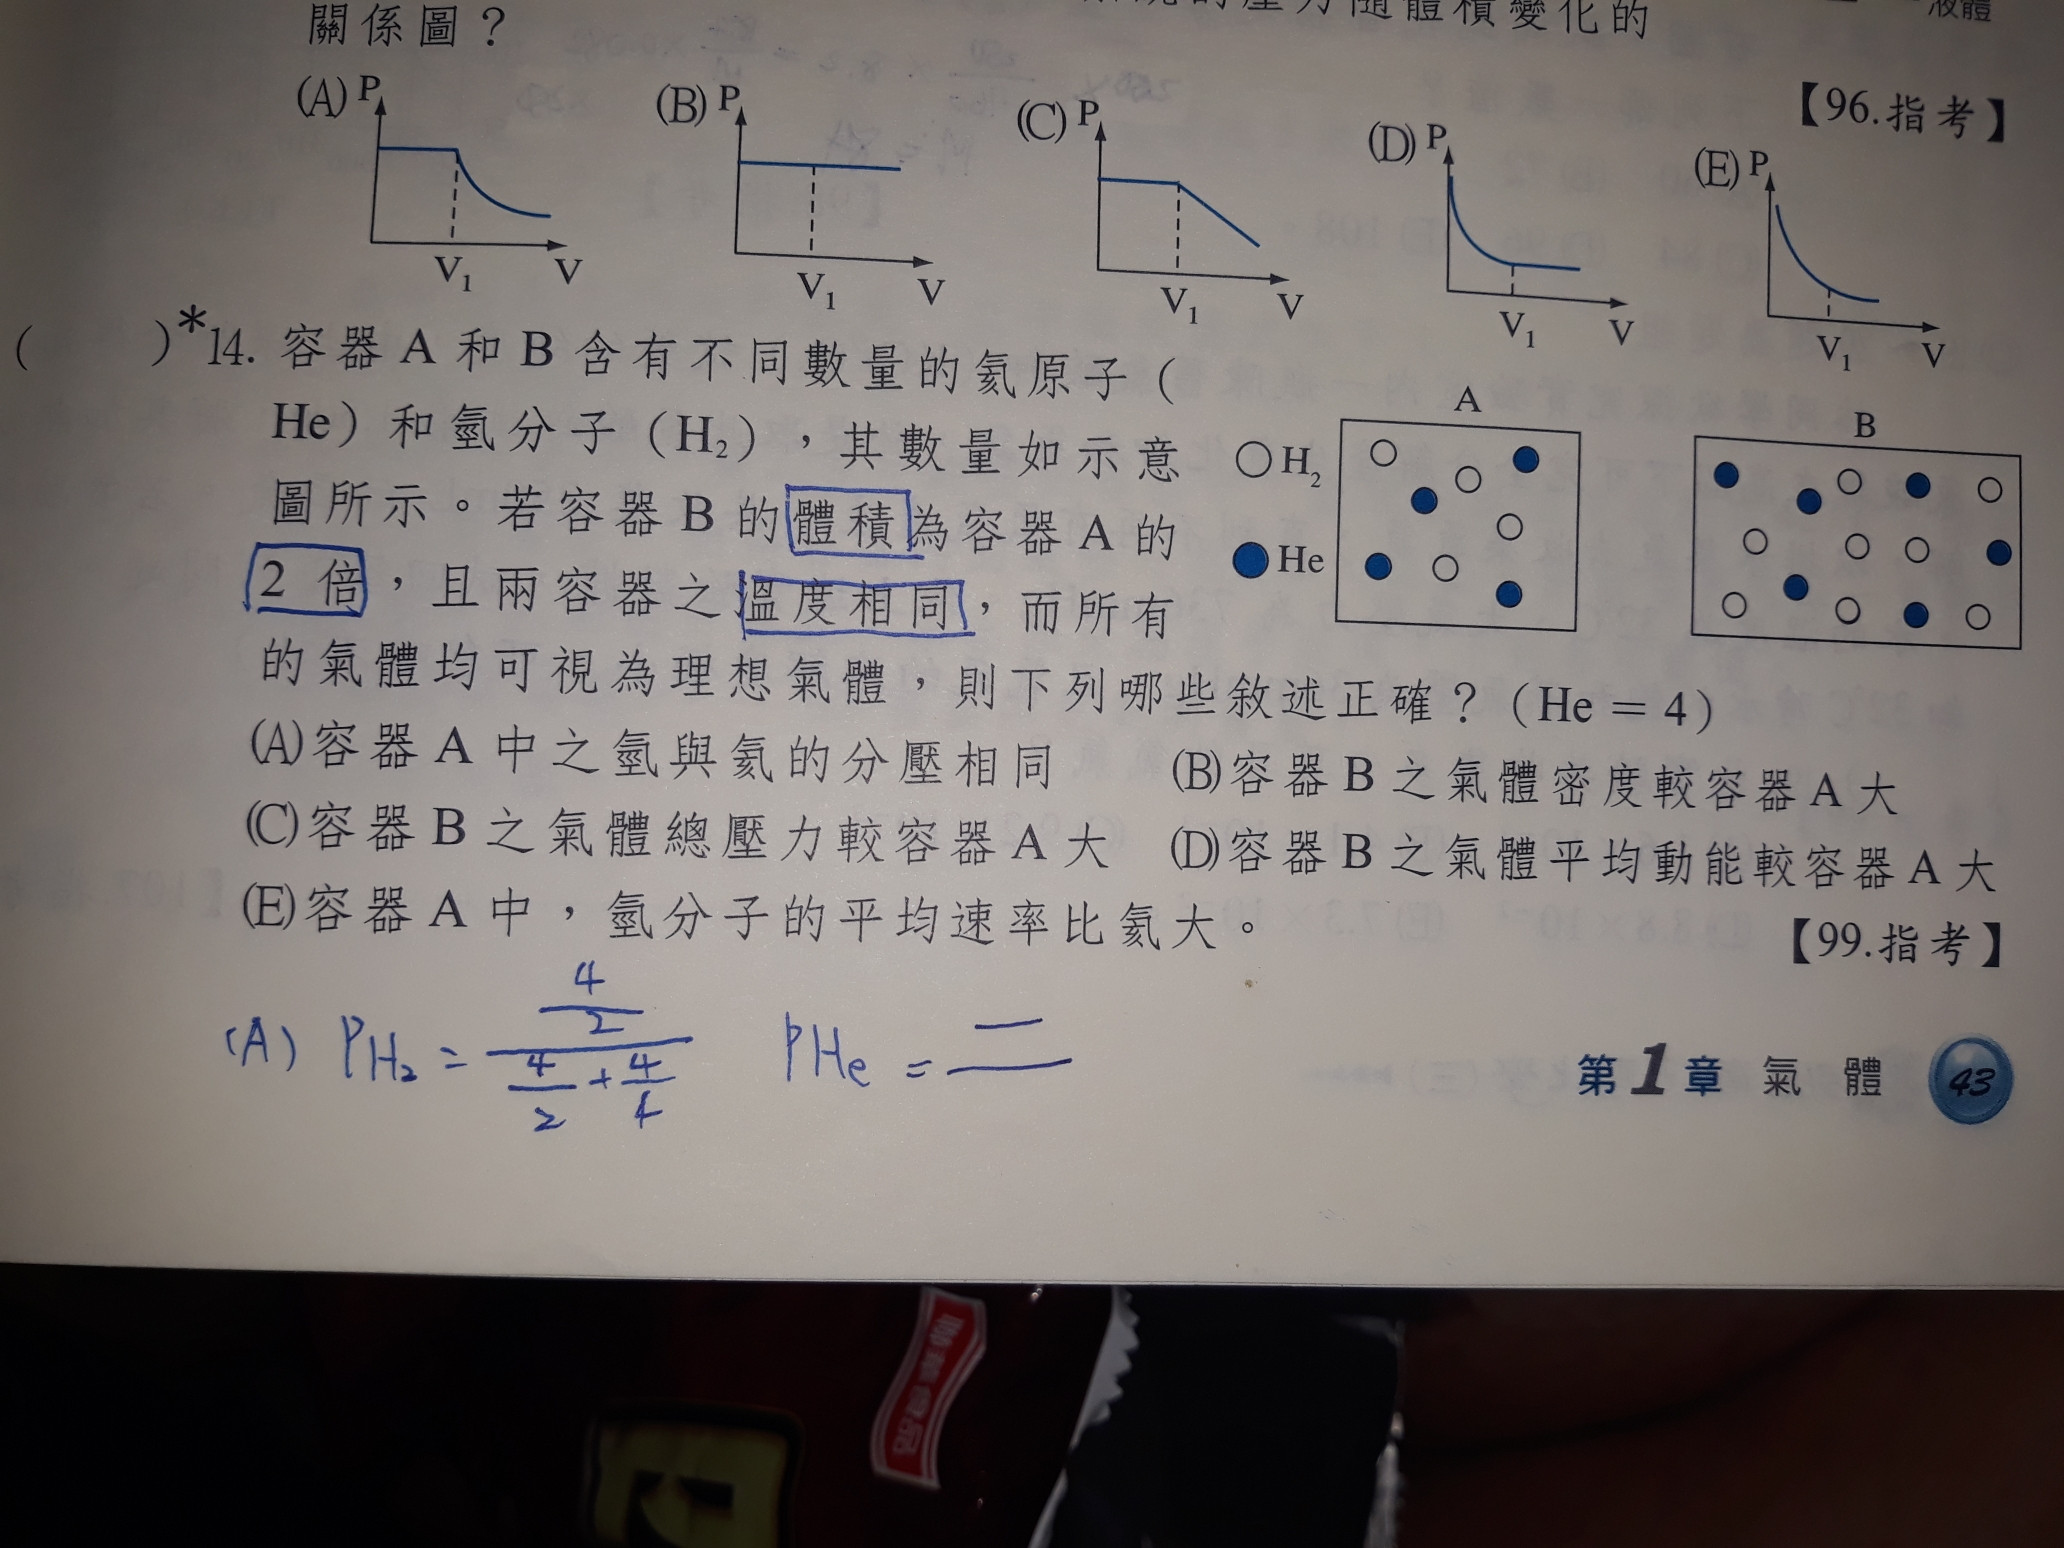 的壓力隨體積變化的
液體
關係圖？
【96.指考】
(A) P V₁ V
(B) P V₁ V
(C) P V₁ V
(D) P V₁ V
(E) P V₁ V
( )*14. 容器 A 和 B 含有不同數量的氦原子（
He）和氫分子（H₂），其數量如示意
圖所示。若容器 B 的體積為容器 A 的
2 倍，且兩容器之溫度相同，而所有
的氣體均可視為理想氣體，則下列哪些敘述正確？（He = 4）
A
B
H₂
He
(A)容器 A 中之氫與氦的分壓相同 (B)容器 B 之氣體密度較容器 A 大
(C)容器 B 之氣體總壓力較容器 A 大 (D)容器 B 之氣體平均動能較容器 A 大
(E)容器 A 中，氫分子的平均速率比氦大。
【99.指考】
(A) PH₂ = 4/2 / (4/2 + 4/4) PHe =
第1章 氣體 43